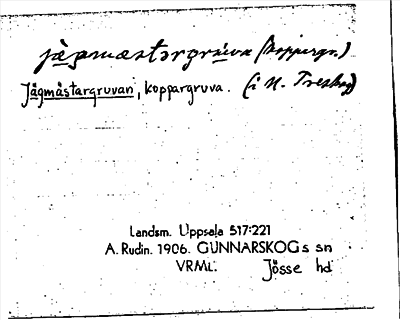 jägmästərgrúva (koppargr.)
Jägmästargruvan, koppargruva. (i N. Treskog)
Landsm. Uppsala 517:221
A. Rudin. 1906. GUNNARSKOGs sn
VRML. Jösse hd